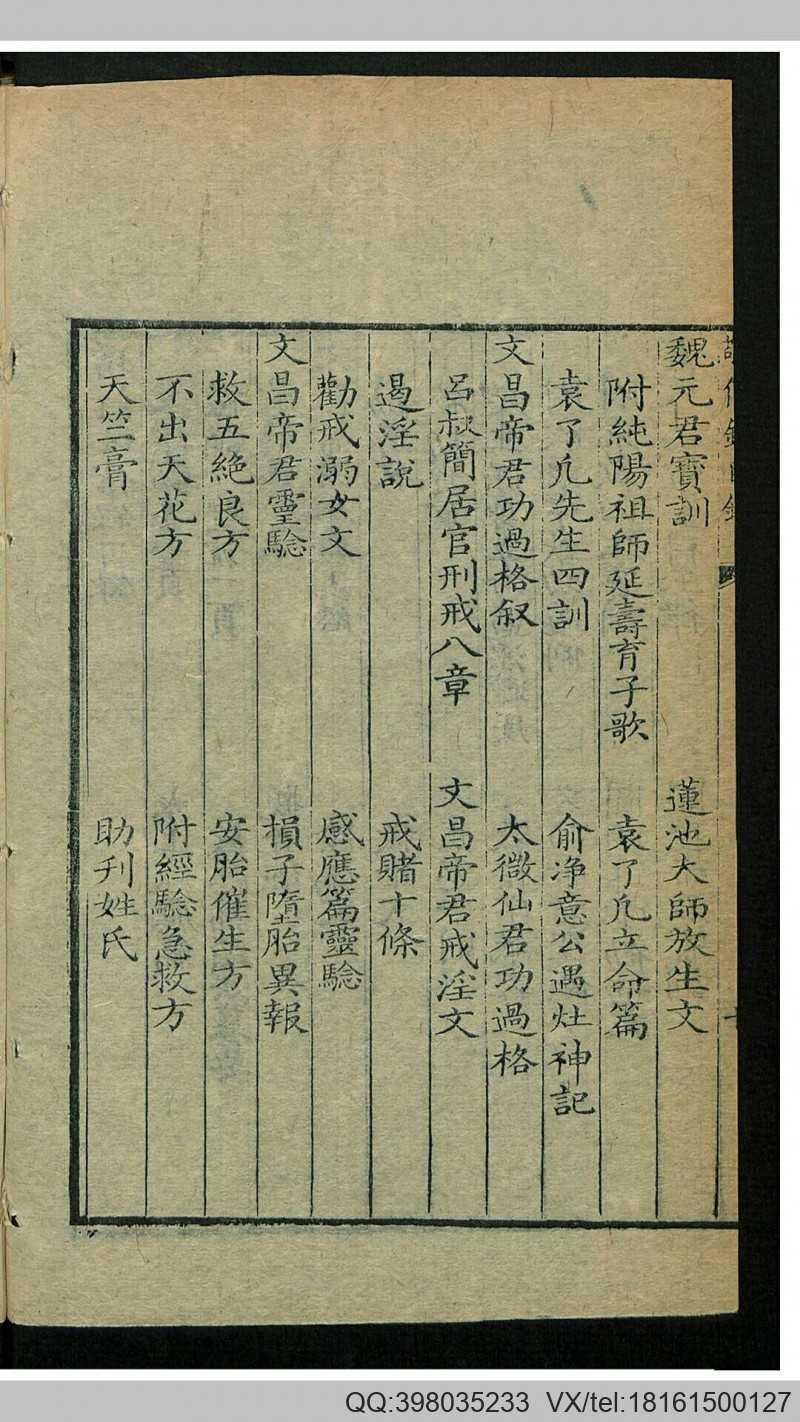 敬信錄目錄
魏元君寶訓　蓮池大師放生文
附純陽祖師延壽育子歌　袁了凡立命篇
袁了凡先生四訓　俞淨意公遇灶神記
文昌帝君功過格叙　太微仙君功過格
呂叔簡居官刑戒八章　文昌帝君戒淫文
遏淫說　戒賭十條
勸戒溺女文　感應篇靈驗
文昌帝君靈驗　損子墮胎異報
救五絕良方　安胎催生方
不出天花方　附經驗急救方
天竺膏　助刋姓氏
QQ:398035233 VX/tel:18161500127